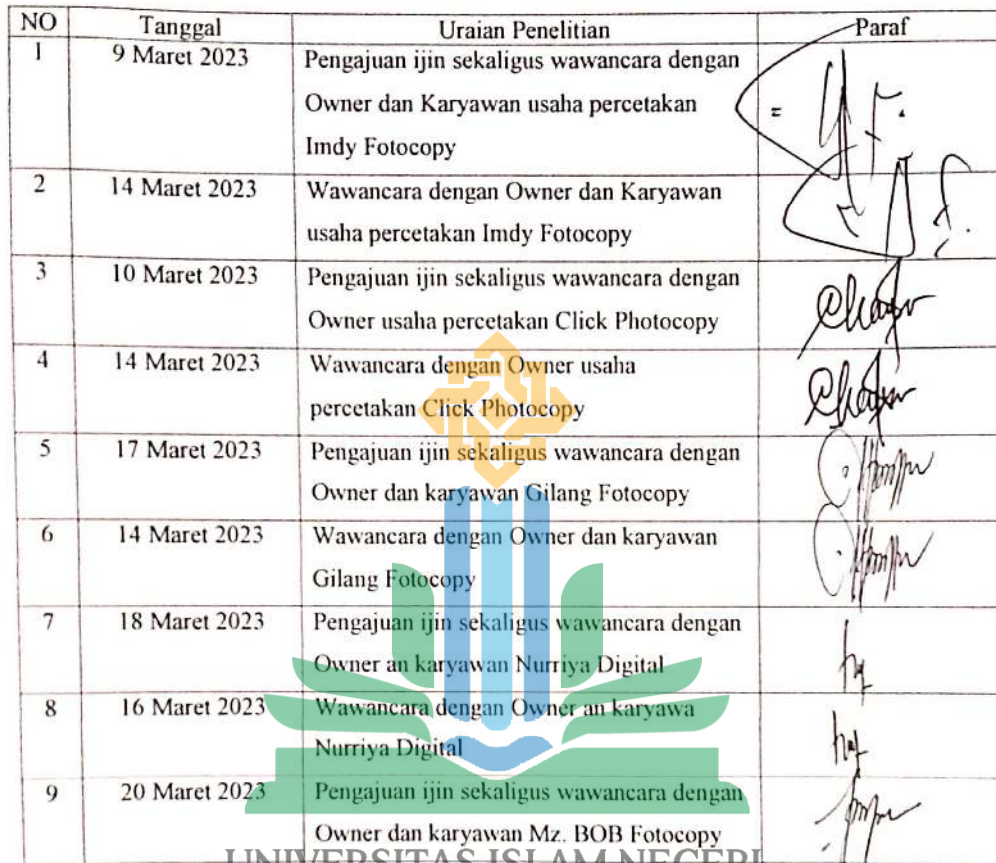 NO Tanggal Uraian Penelitian Paraf
1 9 Maret 2023 Pengajuan ijin sekaligus wawancara dengan
Owner dan Karyawan usaha percetakan
Imdy Fotocopy
2 14 Maret 2023 Wawancara dengan Owner dan Karyawan
usaha percetakan Imdy Fotocopy
3 10 Maret 2023 Pengajuan ijin sekaligus wawancara dengan
Owner usaha percetakan Click Photocopy
4 14 Maret 2023 Wawancara dengan Owner usaha
percetakan Click Photocopy
5 17 Maret 2023 Pengajuan ijin sekaligus wawancara dengan
Owner dan karyawan Gilang Fotocopy
6 14 Maret 2023 Wawancara dengan Owner dan karyawan
Gilang Fotocopy
7 18 Maret 2023 Pengajuan ijin sekaligus wawancara dengan
Owner an karyawan Nurriya Digital
8 16 Maret 2023 Wawancara dengan Owner an karyawa
Nurriya Digital
9 20 Maret 2023 Pengajuan ijin sekaligus wawancara dengan
Owner dan karyawan Mz. BOB Fotocopy
UNIVERSITAS ISLAM NEGERI